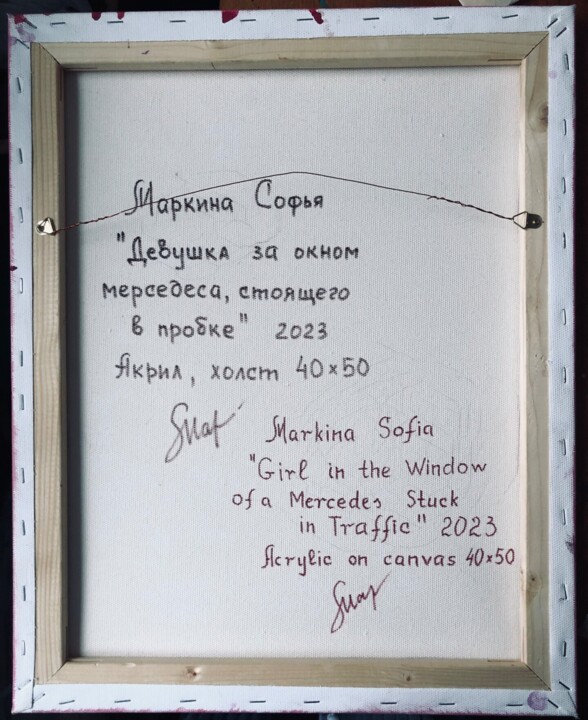 Маркина Софья
"Девушка за окном
мерседеса, стоящего
в пробке" 2023
Акрил, холст 40×50
Markina Sofia
"Girl in the Window
of a Mercedes Stuck
in Traffic" 2023
Acrylic on canvas 40×50